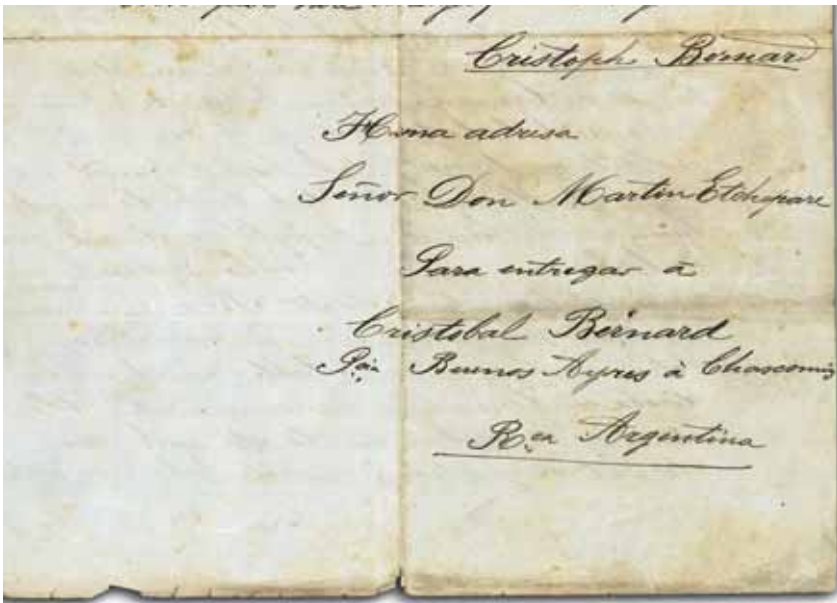 Cristoph Bernard
Hona adresa
Señor Don Martin Etchepare
Para entregar à
Cristobal Bernard
Pcia Buenos Ayres à Chascomús
Rca Argentina